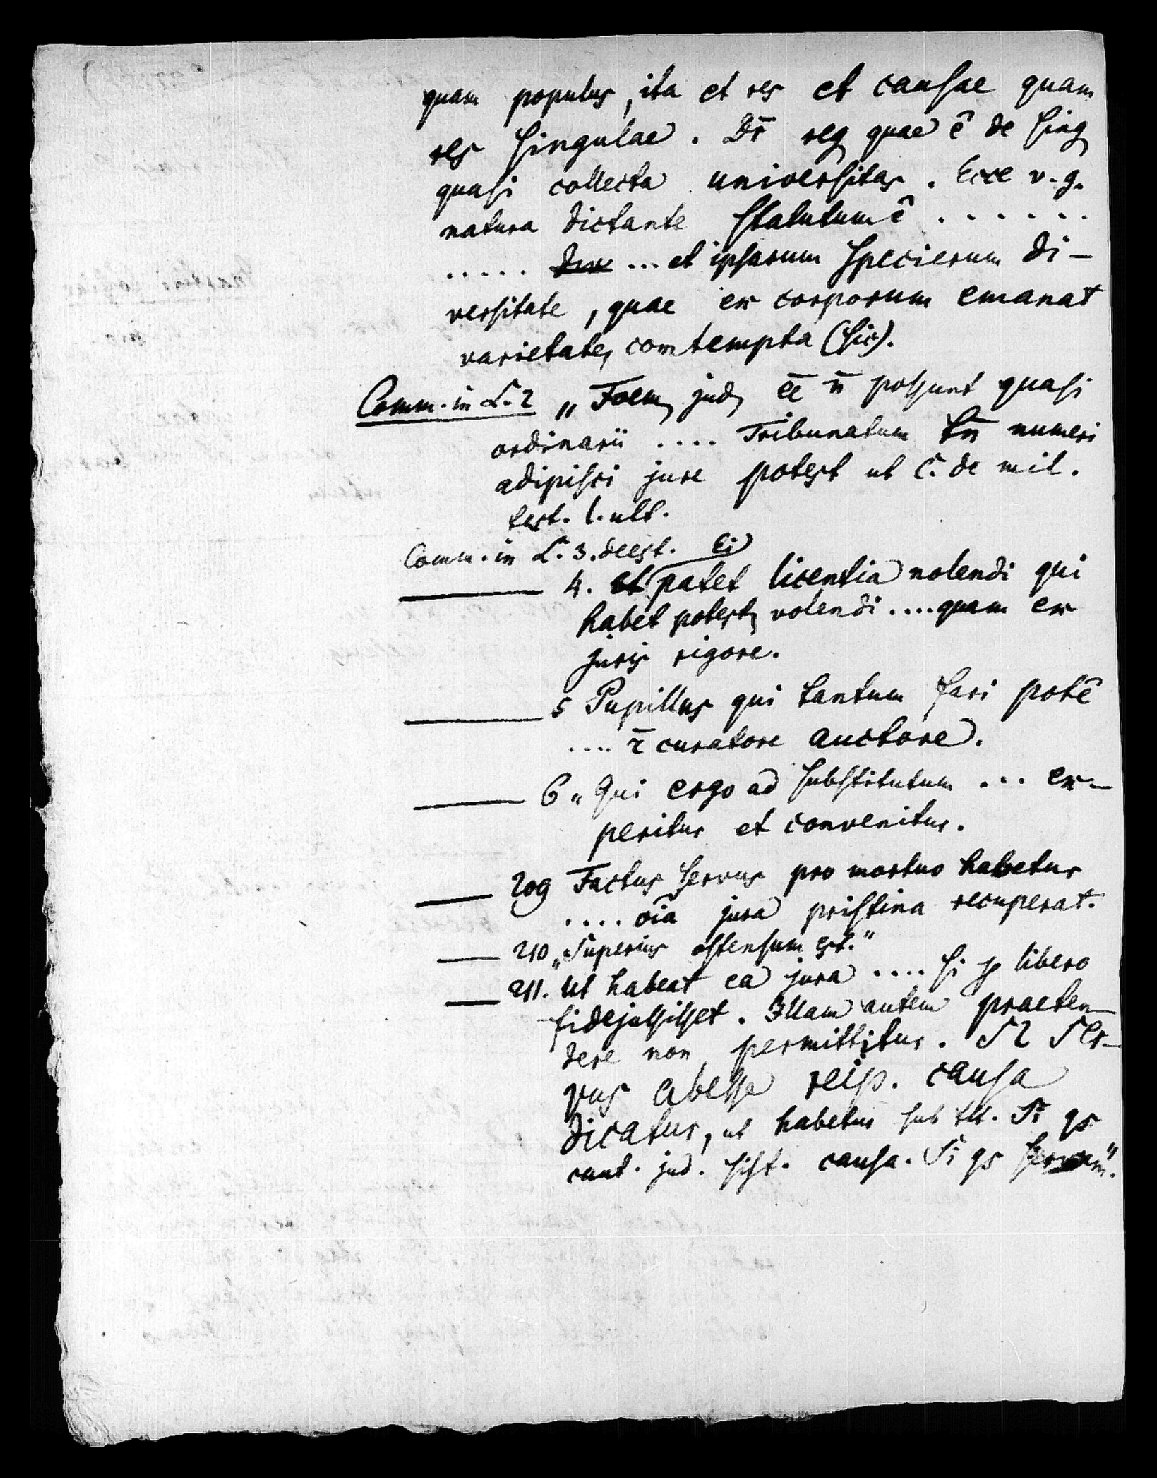 quam populus, ita et res et causae quam
res singulae. Dr̄ reg quae ē de sing
quasi collecta universitas. Ecce v. g.
natura dictante statutum ē . . . . . .
. . . . . ... et ipsarum specierum di-
versitate, quae ex corporum emanat
varietate, comtempta (sic).
Comm. in L. 2 „Foem. jud. ēē n̄ possunt quasi
ordinarii .... Tribunatum tn̄ numeri
adipisci jure potest ut C. de mil.
test. l. ult.
Comm. in L. 3. deest. Ei
4. patet licentia nolendi qui
habet potest. volendi .... quam ex
juris rigore.
5 Pupillus qui tantum fari potē
.... curatore auctore.
6 „Qui ergo ad substitutum ... ex-
peritur et convenitur.
209 Factus servus pro mortuo habetur
.... oīa jura pristina recuperat.
210 „Superius ostensum est."
211. Ut habeat ea jura .... si p libero
fidejussisset. Illam autem praeten-
dere non permittitur. Ser-
vus abesse reip. causa
dicatur, ut habetur sub tit. Si qs
caut. jud. sist. causa. Si qs servum".